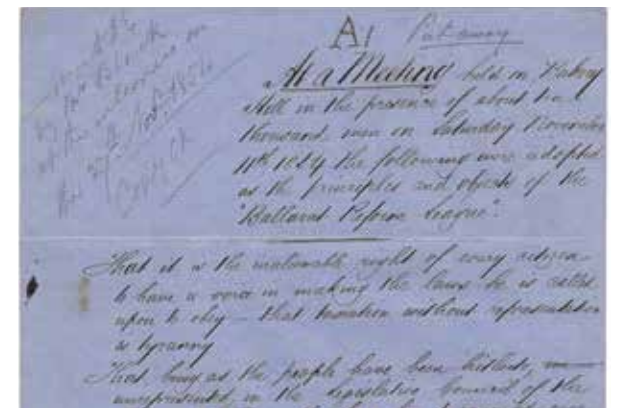 A1
Put away
At a Meeting held on Bakery
Hill in the presence of about ten
thousand men on Saturday November
11th 1854 the following were adopted
as the principles and objects of the
"Ballarat Reform League".
by
at the interview on
the 27th Novr 1854
That it is the inalienable right of every citizen
to have a voice in making the laws he is called
upon to obey – that taxation without representation
is tyranny
That, being as the people have been hitherto,
unrepresented, in the Legislative Council of the